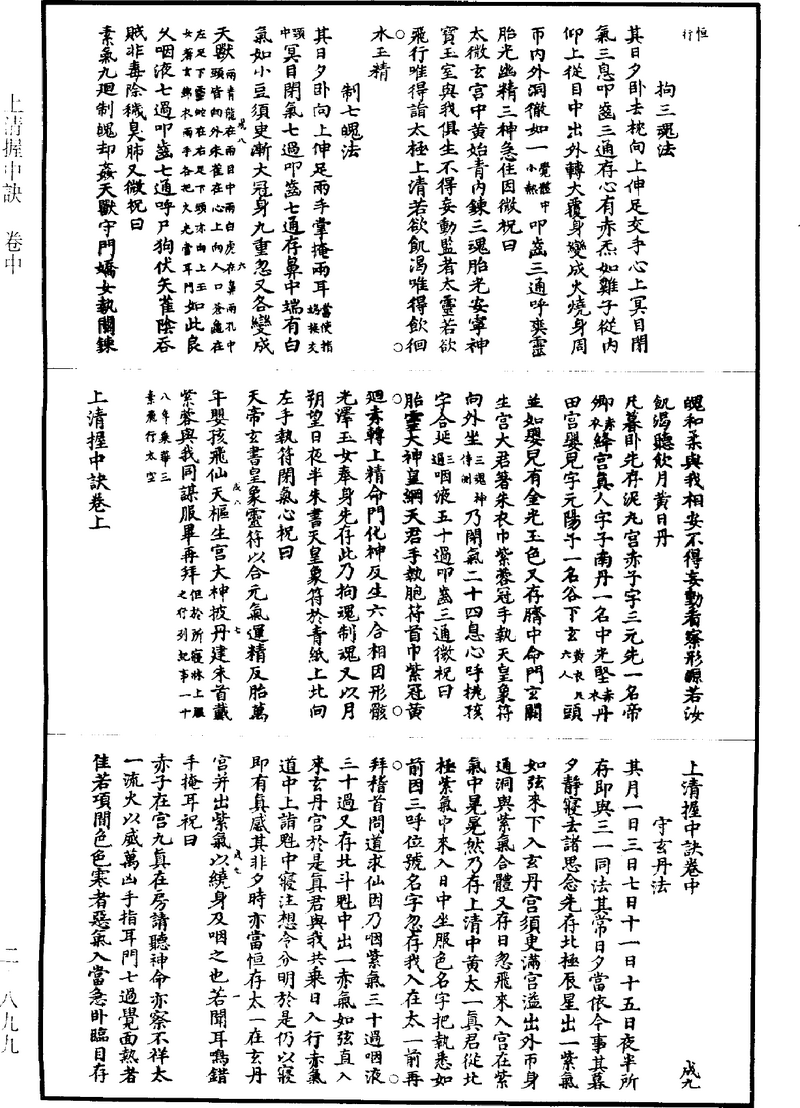 上清握中訣　卷中
二·八九九
恒行
拘三魂法
其日夕卧去枕向上伸足交手心上冥目閉
氣三息叩齒三通存心有赤炁如雞子從内
仰上從目中出外轉大覆身變成火燒身周
帀内外洞徹如一覺體中小熱叩齒三通呼爽靈
胎光幽精三神急住因微祝曰
太微玄宫中黄始青内鍊三魂胎光安寧神
寳玉室與我俱生不得妄動監者太靈若欲
飛行唯得詣太極上清若欲飢渴唯得飲徊
水玉精
制七魄法
其日夕卧向上伸足兩手掌掩兩耳當使指端接交
頭中冥目閉氣七過叩齒七通存鼻中端有白
氣如小豆須臾漸大冠身九重忽又各變成
天獸兩青龍在兩目中兩白虎在鼻兩孔中
頭皆向外朱雀在心上向人口蒼龜在
左足下靈蛇在右足下頭亦向上玉
女著玄錦衣兩手各把火光當耳門如此良
久咽液七過叩齒七通呼尸狗伏矢雀陰吞
賊非毒除穢臭肺又微祝曰
素氣九廻制魄却姦天獸守門嬌女執關鍊
魄和柔與我相安不得妄動看察形源若汝
飢渴聽飲月黄日丹
凡暮卧先存泥丸宫赤子字三元先一名帝
卿赤衣絳宫真人字子南丹一名中光堅赤衣丹
田宫嬰兒字元陽子一名谷下玄黄衣凡六人頭
並如嬰兒有金光玉色又存臍中命門玄關
生宫大君著朱衣巾紫蓉冠手執天皇象符
向外坐三魂神侍側乃閉氣二十四息心呼桃孩
字合延三過咽液五十過叩齒三通微祝曰
胎靈大神皇綱天君手執胞符首巾紫冠黄
廻赤轉上精命門化神反生六合相因形骸
光澤玉女奉身先存此乃拘魂制魂又以月
朔望日夜半朱書天皇象符於青紙上北向
左手執符閉氣心祝曰
天帝玄書皇象靈符以合元氣運精反胎萬
年嬰孩飛仙天樞生宫大神披丹建朱首戴
紫蓉與我同謀服畢再拜但於所寢牀上服之行列紀事一十
八年乘華三素飛行太空
上清握中訣卷上
上清握中訣卷中
成九
守玄丹法
其月一日三日七日十一日十五日夜半所
存即與三一同法其常日夕當依今事其暮
夕静寢去諸思念先存北極辰星出一紫氣
如弦來下入玄丹宫須臾滿宫溢出外帀身
通洞與紫氣合體又存日忽飛來入宫在紫
氣中晃晃然乃存上清中黄太一真君從北
極紫氣中來入日中坐服色名字把執悉如
前因三呼位號名字忽存我入在太一前再
拜稽首問道求仙因乃咽紫氣三十過咽液
三十過又存北斗魁中出一赤氣如弦直入
來玄丹宫於是真君與我共乘日入行赤氣
道中上詣魁中寢注想令分明於是仍以寢
即有真感其非夕時亦當恒存太一在玄丹
宫并出紫氣以繞身及咽之也若聞耳鳴錯
手掩耳祝曰
赤子在宫九真在房請聽神命亦察不祥太
一流火以威萬凶手指耳門七過覺面熱者
佳若項間色色寒者惡氣入當急卧臨目存